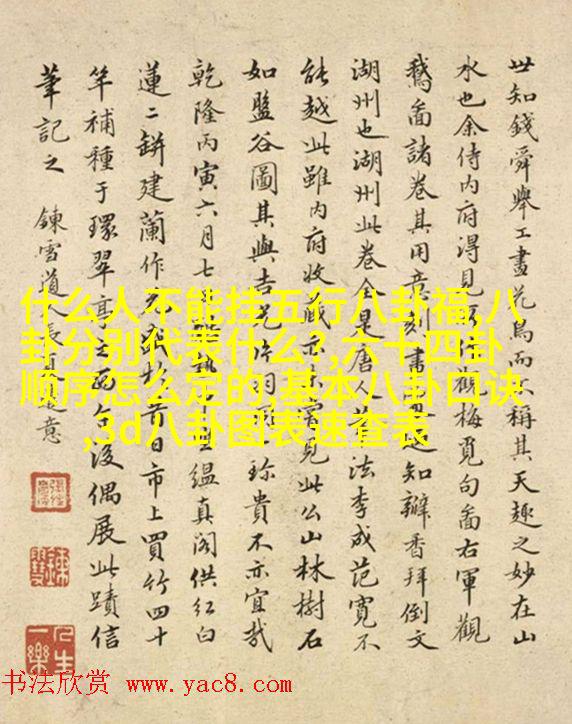 世知錢舜舉工畫花鳥而不稱其天趣之妙在山
水也余侍内府得見
觀梅覓句畫右軍觀
鵝畫諸卷其用意刻畫
知辦香拜倒文
湖州也湖州此卷全是唐人
法李成范寬不
能越此雖内府收藏亦未嘗見此公山林樹石
如盤谷圖其與
珍貴不亦宜哉
乾隆丙寅六月七
縕真阁供红白
蓮二缾建蘭作
昔日市上買竹四十
竿補種于環翠亭
後偶展此蹟信
筆記之 鍊雪道人張
意
什么人不能挂五行八卦福,八
卦分别代表什么?,六十四卦
顺序怎么定的,基本八卦口诀
,3d八卦图表速查表
人生一樂
书法欣赏 www.yac8.com